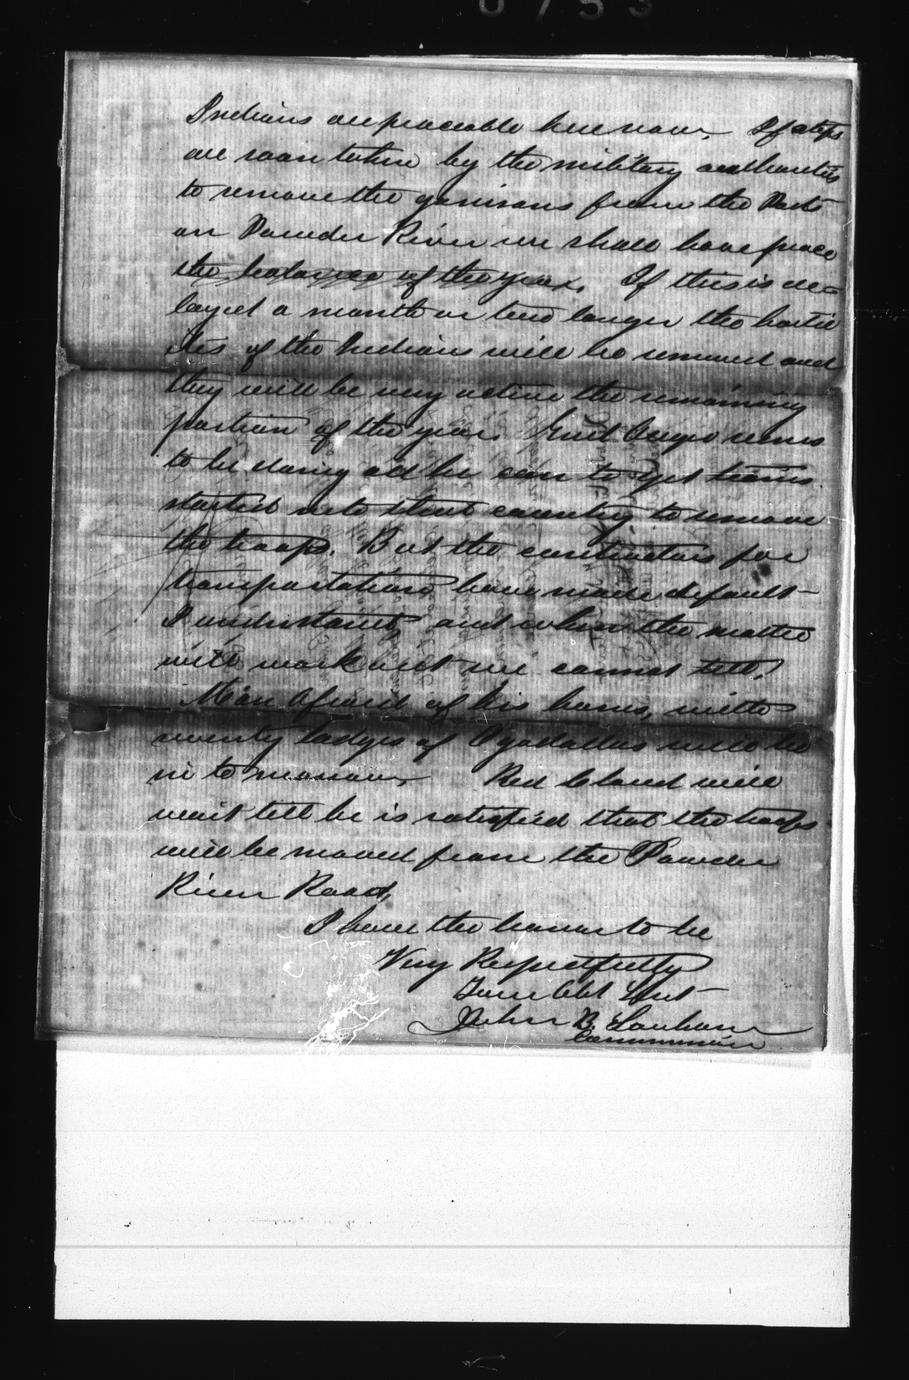 0753
Indians are peaceable here now. If steps
are soon taken by the military authorities
to remove the garrisons from the Posts
on Powder River we shall have peace
the balance of the year. If this is de-
layed a month or two longer the hostili-
ties of the Indians will be renewed and
they will be very active the remaining
portion of the year. Genl Augur seems
to be doing all he can to get trains
started into that country to remove
the troops. But the contractors for
transportation have made default
I understand, and when the matter
will work out we cannot tell.
Man Afraid of his horses, with
seventy Lodges of Ogadallas will be
in to morrow. Red Cloud will
wait till he is satisfied that the troops
will be moved from the Powder
River Road,
I have the honor to be
Very Respectfully
Your Obt Svt
John B. Sanborn
Commissioner